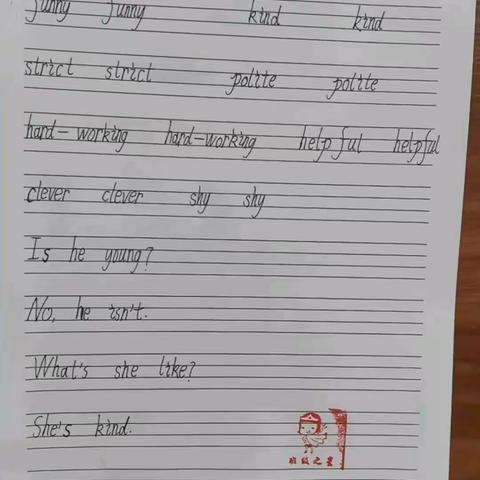 funny funny kind kind
strict strict polite polite
hard-working hard-working helpful helpful
clever clever shy shy
Is he young?
No, he isn't.
What's she like?
She's kind.
班级之星